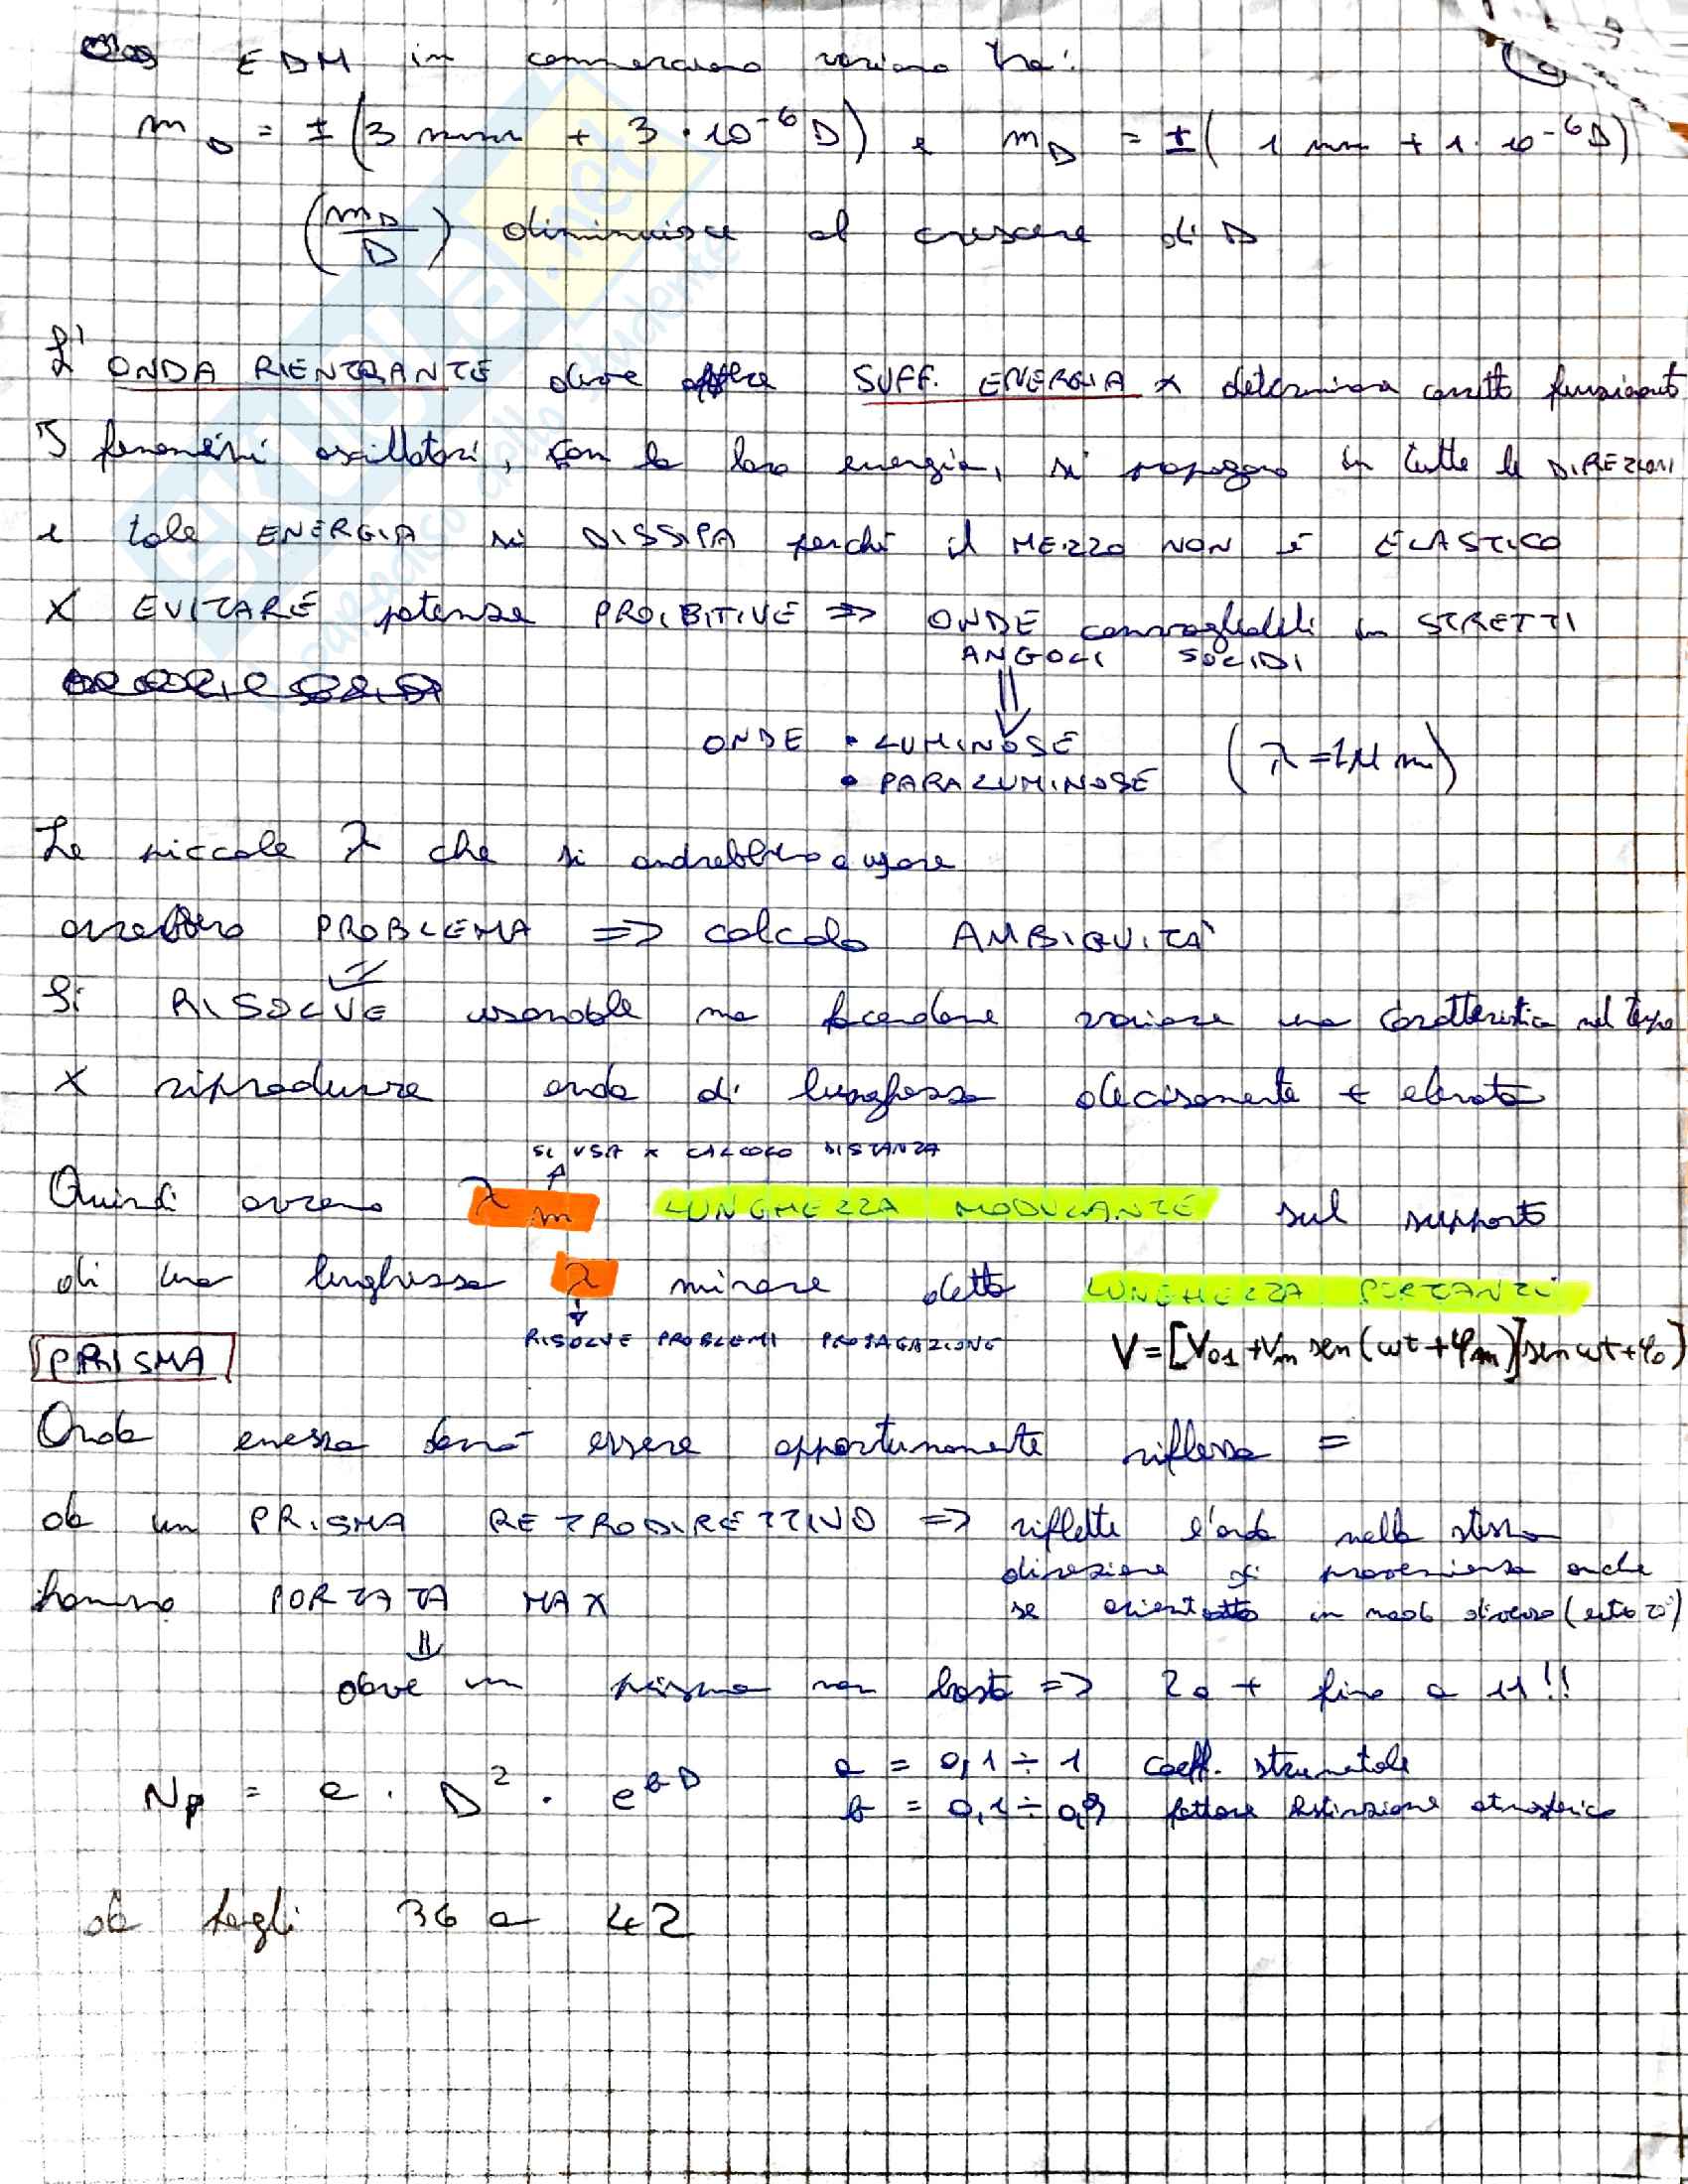 EDM in commercio variano tra:
m_D = ± (3 mm + 3 · 10⁻⁶ D) e m_D = ± (1 mm + 1 · 10⁻⁶ D)
(m_D / D) diminuisce al crescere di D
L' ONDA RIENTRANTE deve avere SUFF. ENERGIA x determinare corretto
I fenomeni oscillatori, con la loro energia, si propagano in tutte le DIREZIONI
e tale ENERGIA si DISSIPA perché il MEZZO NON È ELASTICO
X EVITARE potenze PROIBITIVE => ONDE convogliabili in STRETTI
ANGOLI SOLIDI
ONDE • LUMINOSE
• PARALUMINOSE (λ = 1 μm)
Le piccole λ che si andrebbero a usare
avrebbero PROBLEMA => calcolo AMBIGUITÀ
Si RISOLVE usandole ma facendone variare una caratteristica nel tempo
X riprodurre onda di lunghezza decisamente + elevata
SI USA x CALCOLO DISTANZA
Quindi avremo λ m LUNGHEZZA MODULANTE sul supporto
di una lunghezza λ minore detta LUNGHEZZA PORTANTE
RISOLVE PROBLEMI PROPAGAZIONE
V = [V₀₁ + Vm sen(ωt + φm)] sen ωt + φ₀]
PRISMA
Onda emessa dovrà essere opportunamente riflessa =
da un PRISMA RETRODIRETTIVO => riflette l'onda nella stessa
direzione di provenienza anche
se orientato in modo diverso (entro 20°)
hanno PORTATA MAX
dove un prisma non basta => 2 o + fino a 11!!
Np = a · D² · e^{bD}
a = 0,1 ÷ 1 coeff. strumentale
b = 0,1 ÷ fattore estinzione atmosferico
da fogli 36 a 42
EKUBE.net
appartiene allo studente